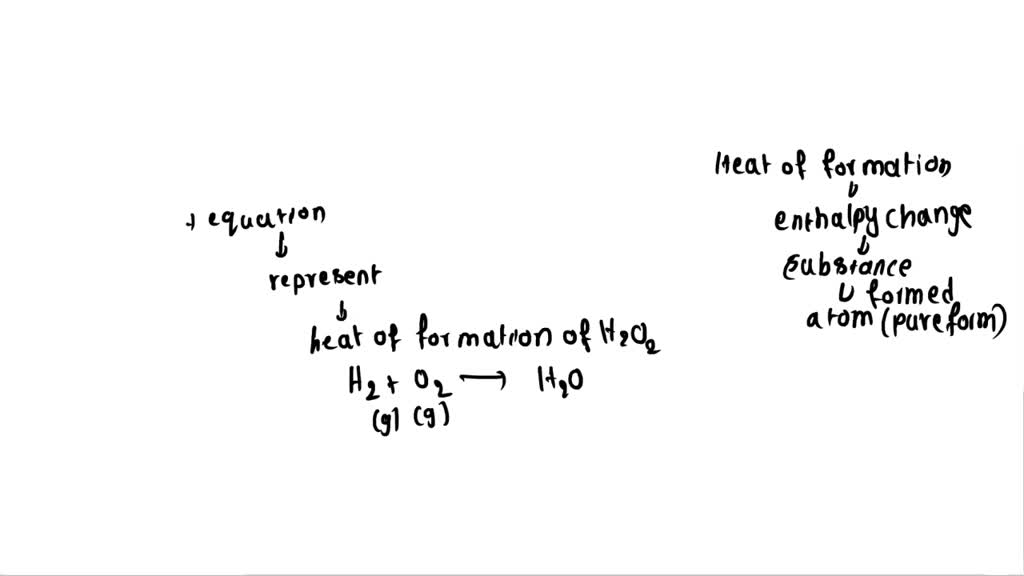 Heat of formation
enthalpy change
substance
formed
atom (pure form)
→ equation
represent
heat of formation of H₂O₂
H₂ + O₂ ⟶ H₂O
(g) (g)